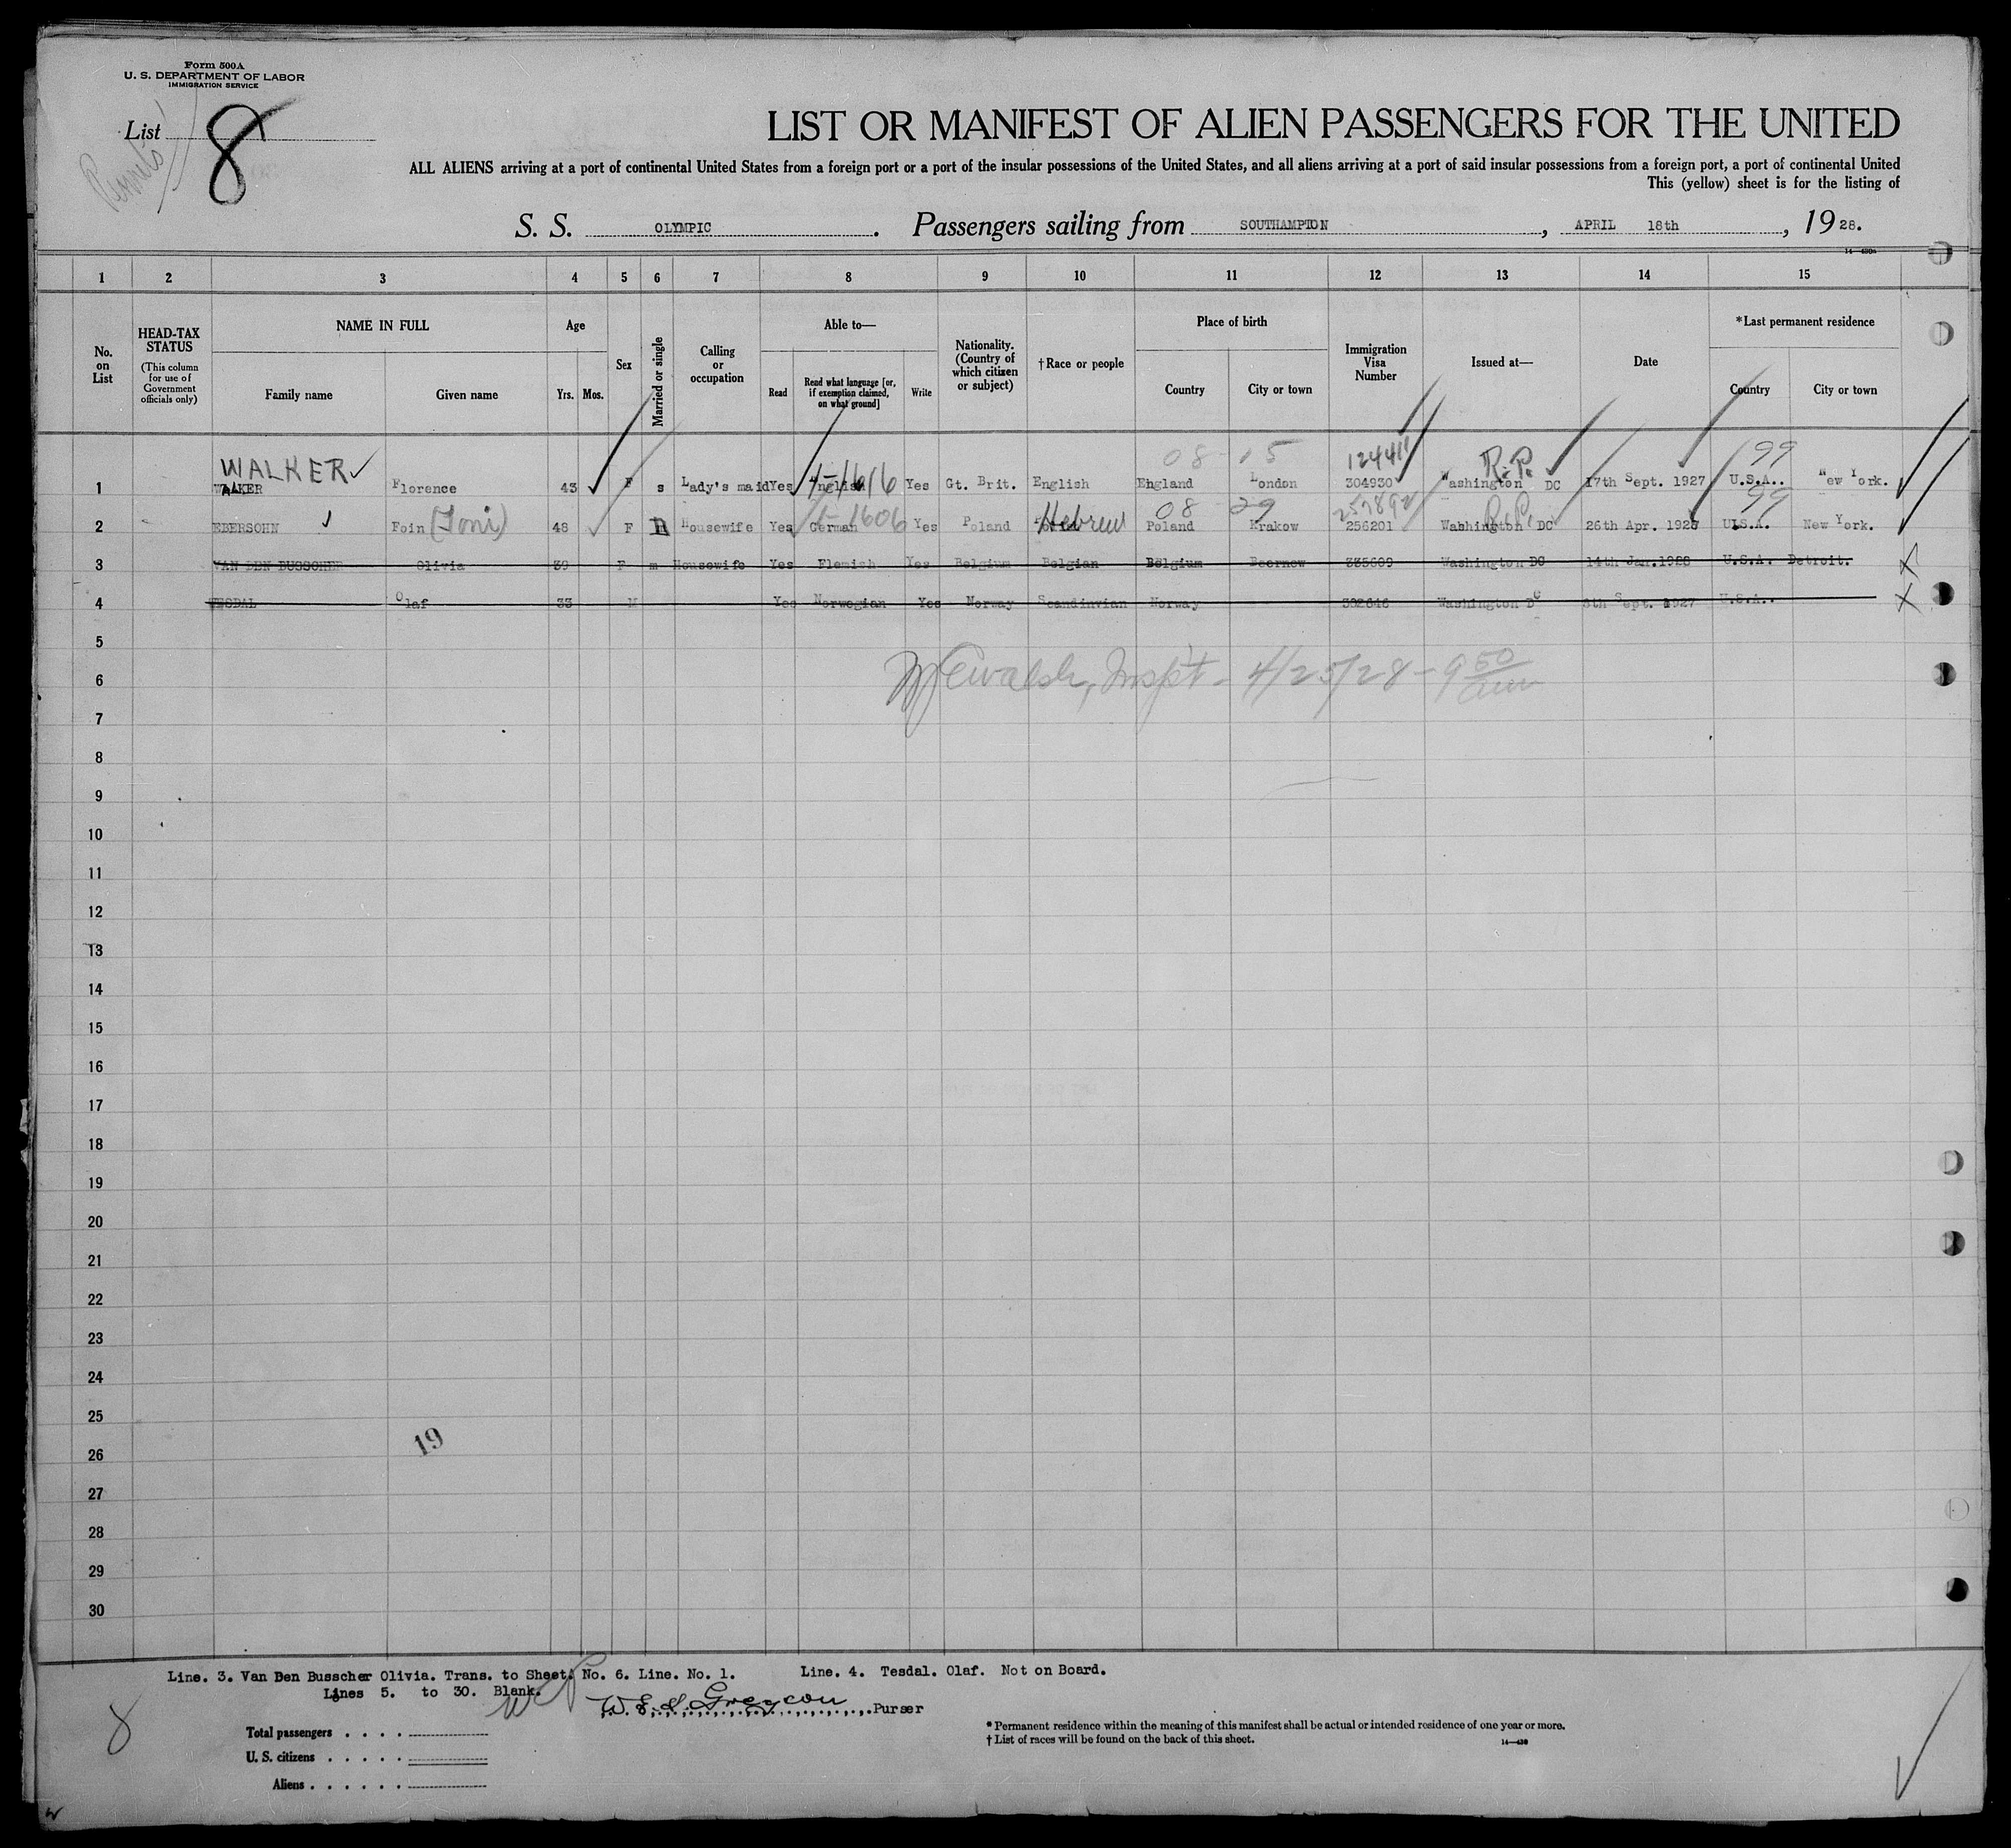 Form 500A
U. S. DEPARTMENT OF LABOR
IMMIGRATION SERVICE
List 8
LIST OR MANIFEST OF ALIEN PASSENGERS FOR THE UNITED
ALL ALIENS arriving at a port of continental United States from a foreign port or a port of the insular possessions of the United States, and all aliens arriving at a port of said insular possessions from a foreign port, a port of continental United
This (yellow) sheet is for the listing of
S. S. OLYMPIC. Passengers sailing from SOUTHAMPTON, APRIL 18th, 1928.
14—430a
1 2 3 4 5 6 7 8 9 10 11 12 13 14 15
No. on List
HEAD-TAX STATUS
(This column for use of Government officials only)
NAME IN FULL
Family name
Given name
Age
Yrs. Mos.
Sex
Married or single
Calling or occupation
Able to—
Read
Read what language [or, if exemption claimed, on what ground]
Write
Nationality. (Country of which citizen or subject)
†Race or people
Place of birth
Country
City or town
Immigration Visa Number
Issued at—
Date
*Last permanent residence
Country
City or town
WALKER 5-1616 08 15 124411 R.P. 99
1 WALKER Florence 43 F s Lady's maid Yes English Yes Gt. Brit. English England London 304930 Washington DC 17th Sept. 1927 U.S.A.. New York.
5-1606 08 29 R.P. 99
2 EBERSOHN Foin (Toni) 48 F m Housewife Yes German Yes Poland Hebrew Poland Krakow 256201 Washington DC 26th Apr. 1928 U.S.A. New York.
3 VAN DEN BUSSCHER Olivia 39 F m Housewife Yes Flemish Yes Belgium Belgian Belgium Beernew 335609 Washington DC 14th Jan.1928 U.S.A. Detroit. X
4 TESDAL Olaf 33 M Yes Norwegian Yes Norway Scandinvian Norway 302646 Washington DC 8th Sept. 1927 U.S.A.. X
5
6 Walsh, Inspt - 4/25/28 - 9 50 am
7
8
9
10
11
12
13
14
15
16
17
18
19
20
21
22
23
24
25
26 19
27
28
29
30
Line. 3. Van Den Busscher Olivia. Trans. to Sheet. No. 6. Line. No. 1. Line. 4. Tesdal. Olaf. Not on Board.
Lines 5. to 30. Blank.
Purser
8
Total passengers
U. S. citizens
Aliens
* Permanent residence within the meaning of this manifest shall be actual or intended residence of one year or more.
† List of races will be found on the back of this sheet.
14—430